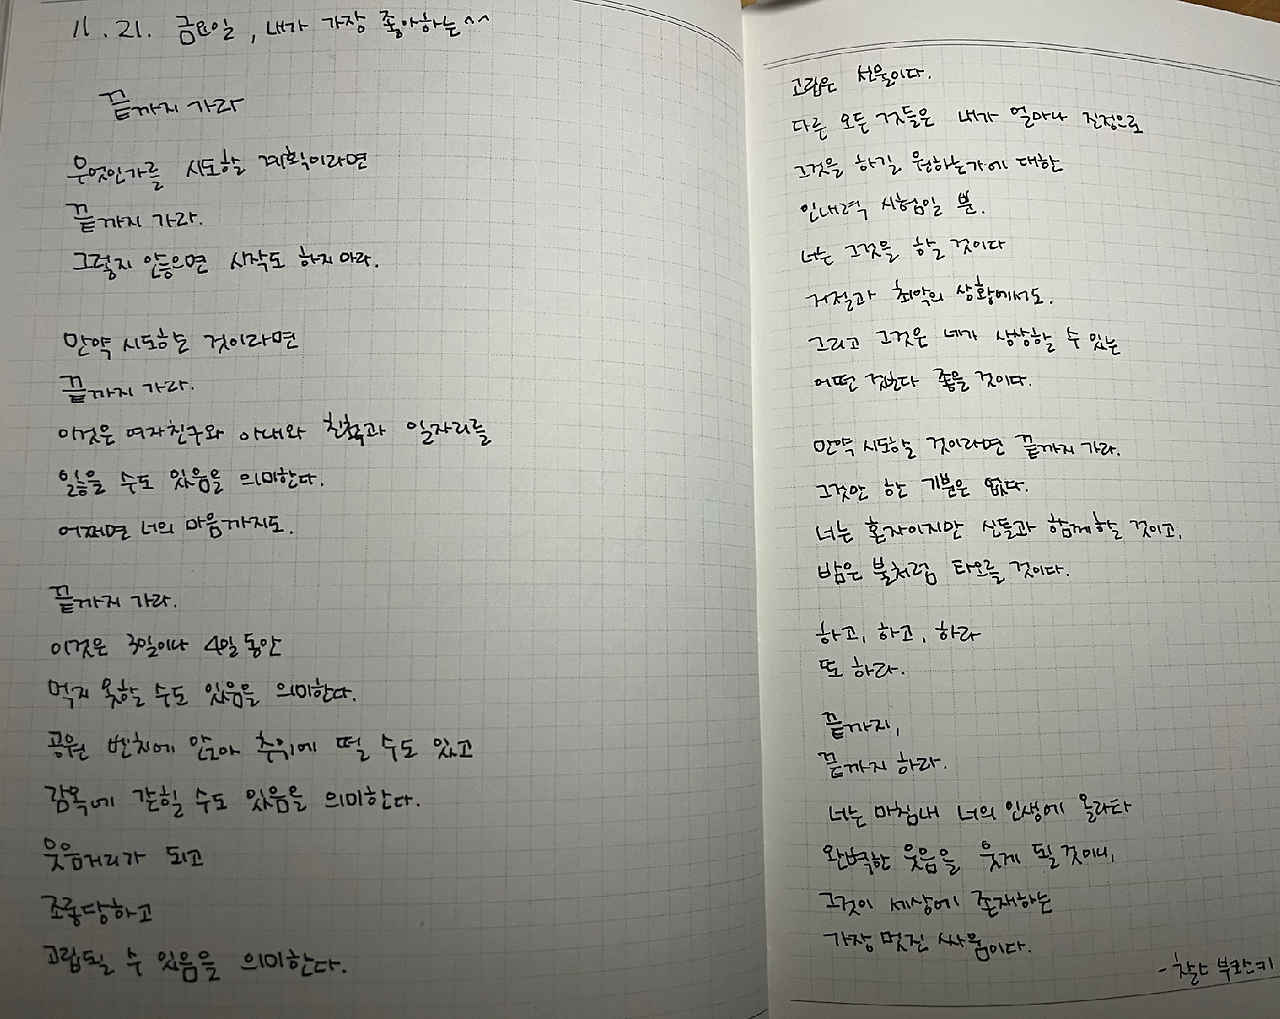 11. 21. 금요일, 내가 가장 좋아하는^^
끝까지 가라
무엇인가를 시도할 계획이라면
끝까지 가라.
그렇지 않으면 시작도 하지 마라.
만약 시도하는 것이라면
끝까지 가라.
이것은 여자친구와 아내와 친척과 일자리를
잃을 수도 있음을 의미한다.
어쩌면 너의 마음까지도.
끝까지 가라.
이것은 3일이나 4일 동안
먹지 못할 수도 있음을 의미한다.
공원 벤치에 앉아 추위에 떨 수도 있고
감옥에 갇힐 수도 있음을 의미한다.
웃음거리가 되고
조롱당하고
고립될 수 있음을 의미한다.
고립은 선물이다.
다른 모든 것들은 네가 얼마나 진정으로
그것을 하길 원하는가에 대한
인내력 시험일 뿐.
너는 그것을 할 것이다
거절과 최악의 상황에서도.
그리고 그것은 네가 상상할 수 있는
어떤 것보다 좋을 것이다.
만약 시도할 것이라면 끝까지 가라.
그것만 한 기분은 없다.
너는 혼자이지만 신들과 함께할 것이고,
밤은 불처럼 타오를 것이다.
하고, 하고, 하라
또 하라.
끝까지,
끝까지 하라.
너는 마침내 너의 인생에 올라타
완벽한 웃음을 웃게 될 것이니,
그것이 세상에 존재하는
가장 멋진 싸움이다.
- 찰스 부코스키